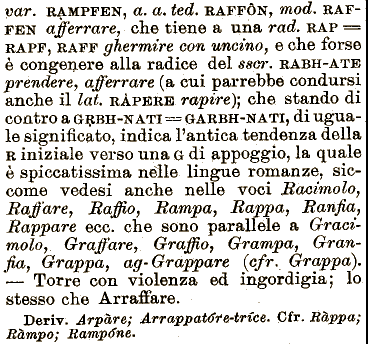 var. RAMPFEN, a. a. ted. RAFFÔN, mod. RAF-
FEN afferrare, che tiene a una rad. RAP =
RAPF, RAFF ghermire con uncino, e che forse
è congenere alla radice del sscr. RABH-ATE
prendere, afferrare (a cui parrebbe condursi
anche il lat. RÀPERE rapire); che stando di
contro a GRBH-NATI = GARBH-NATI, di ugua-
le significato, indica l'antica tendenza della
R iniziale verso una G di appoggio, la quale
è spiccatissima nelle lingue romanze, sic-
come vedesi anche nelle voci Racimolo,
Raffare, Raffio, Rampa, Rappa, Ranfia,
Rappare ecc. che sono parallele a Graci-
molo, Graffare, Graffio, Grampa, Gran-
fia, Grappa, ag-Grappare (cfr. Grappa).
— Torre con violenza ed ingordigia; lo
stesso che Arraffare.
Deriv. Arpàre; Arrappatóre-trìce. Cfr. Ràppa;
Ràmpo; Rampóne.